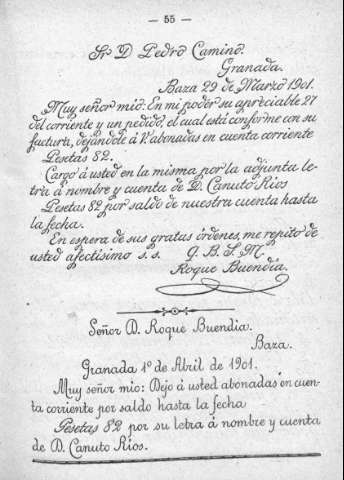 — 55 —
Sr. D. Pedro Camino.
Granada.
Baza 29 de Marzo 1901.
Muy señor mio: En mi poder su apreciable 27
del corriente y un pedido, el cual está conforme con su
factura, dejándole á V. abonadas en cuenta corriente
Pesetas 82.
Cargo á usted en la misma por la adjunta le-
tra á nombre y cuenta de D. Canuto Rios
Pesetas 82 por saldo de nuestra cuenta hasta
la fecha.
En espera de sus gratas órdenes, me repito de
usted afectísimo s. s. q. B. S. M.
Roque Buendía.
Señor D. Roque Buendia.
Baza.
Granada 1º de Abril de 1901.
Muy señor mio: Dejo á usted abonadas en cuen-
ta corriente por saldo hasta la fecha
Pesetas 82 por su letra á nombre y cuenta
de D. Canuto Rios.